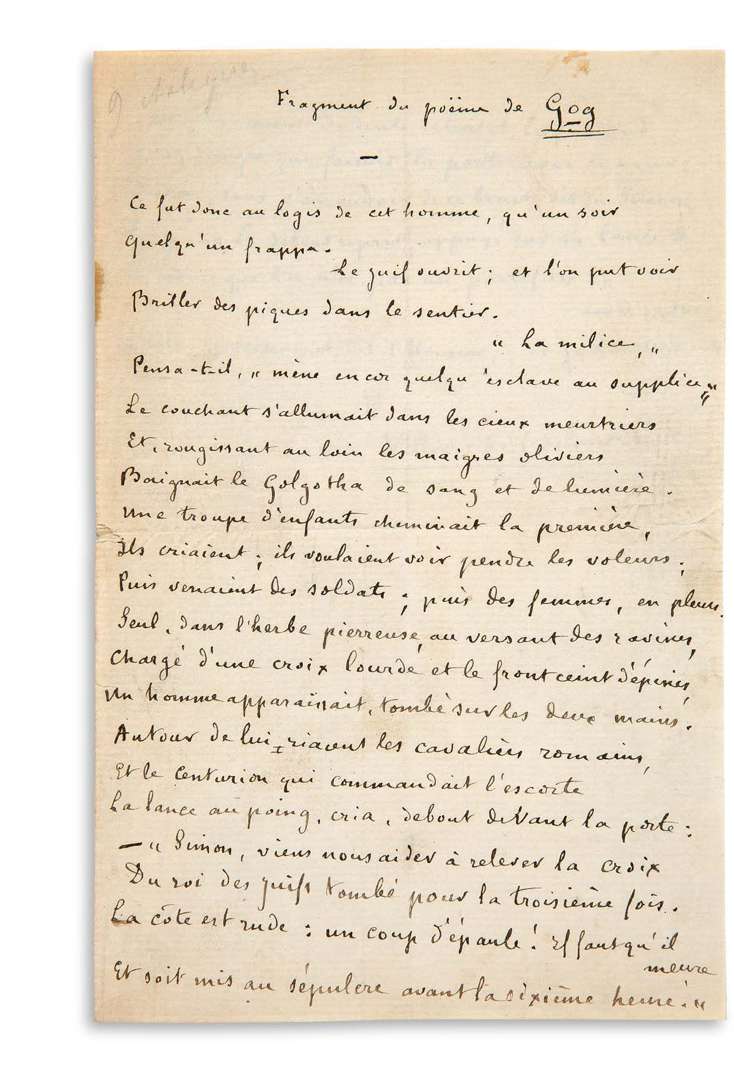 Fragment du poëme de Gog
—
Ce fut donc au logis de cet homme, qu'un soir
Quelqu'un frappa.
Le juif ouvrit ; et l'on put voir
Briller des piques dans le sentier.
" La milice, "
Pensa-t-il, " mène encor quelqu'esclave au supplice, "
Le couchant s'allumait dans les cieux meurtriers
Et, rougissant au loin les maigres oliviers
Baignait le Golgotha de sang et de lumière.
Une troupe d'enfants cheminait la première,
Ils criaient ; ils voulaient voir pendre les voleurs ;
Puis venaient des soldats ; puis des femmes, en pleurs.
Seul, dans l'herbe pierreuse, au versant des ravines,
Chargé d'une croix lourde et le front ceint d'épines,
Un homme apparaissait, tombé sur les deux mains.
Autour de lui riaient les cavaliers romains,
Et le Centurion qui commandait l'escorte
La lance au poing, cria, debout devant la porte :
— " Simon, viens nous aider à relever la croix
Du roi des juifs tombé pour la troisième fois.
La côte est rude : un coup d'épaule ! Il faut qu'il
meure
Et soit mis au sépulcre avant la sixième heure ! "